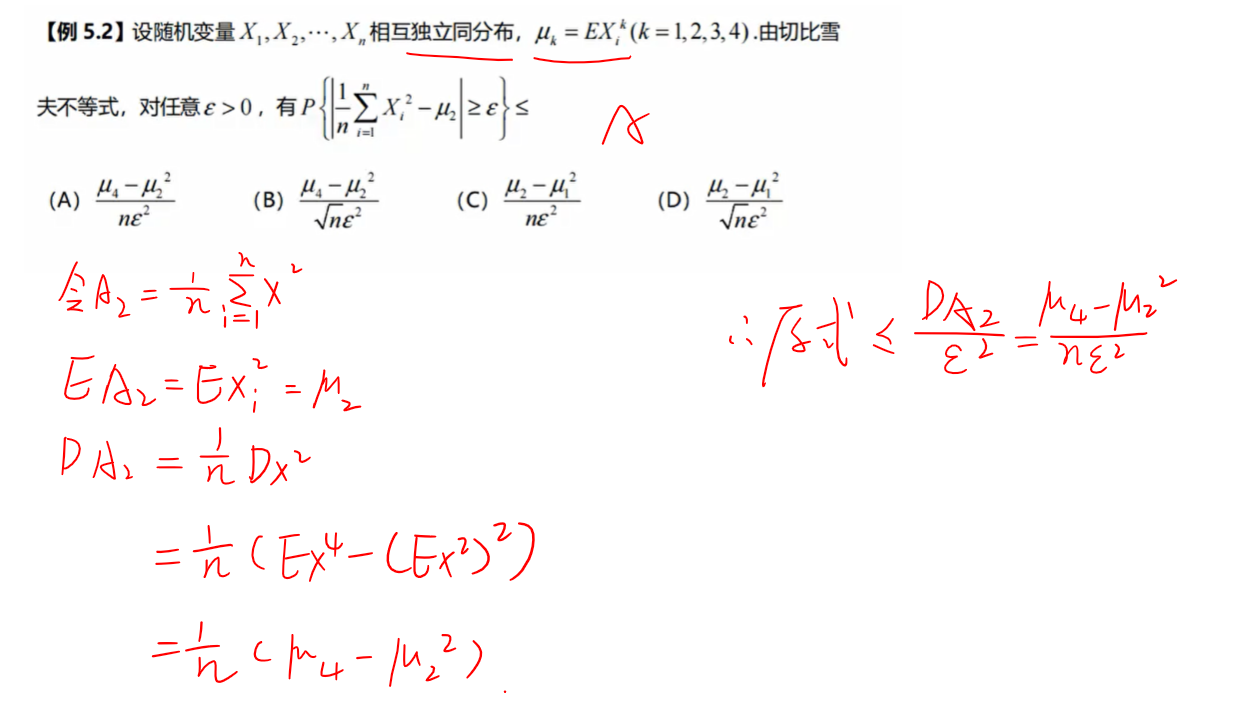 【例 5.2】设随机变量 X₁, X₂, ⋯, Xₙ 相互独立同分布，μₖ = EXᵢᵏ (k = 1, 2, 3, 4) .由切比雪
夫不等式，对任意 ε > 0，有 P{|1/n ∑ᵢ₌₁ⁿ Xᵢ² − μ₂| ≥ ε} ≤
A
(A) (μ₄ − μ₂²)/(nε²) (B) (μ₄ − μ₂²)/(√nε²) (C) (μ₂ − μ₁²)/(nε²) (D) (μ₂ − μ₁²)/(√nε²)
令A₂ = 1/n ∑ᵢ₌₁ⁿ X²
EA₂ = EXᵢ² = μ₂
DA₂ = 1/n DX²
= 1/n (EX⁴ − (EX²)²)
= 1/n (μ₄ − μ₂²)
∴原式 ≤ DA₂/ε² = (μ₄ − μ₂²)/(nε²)